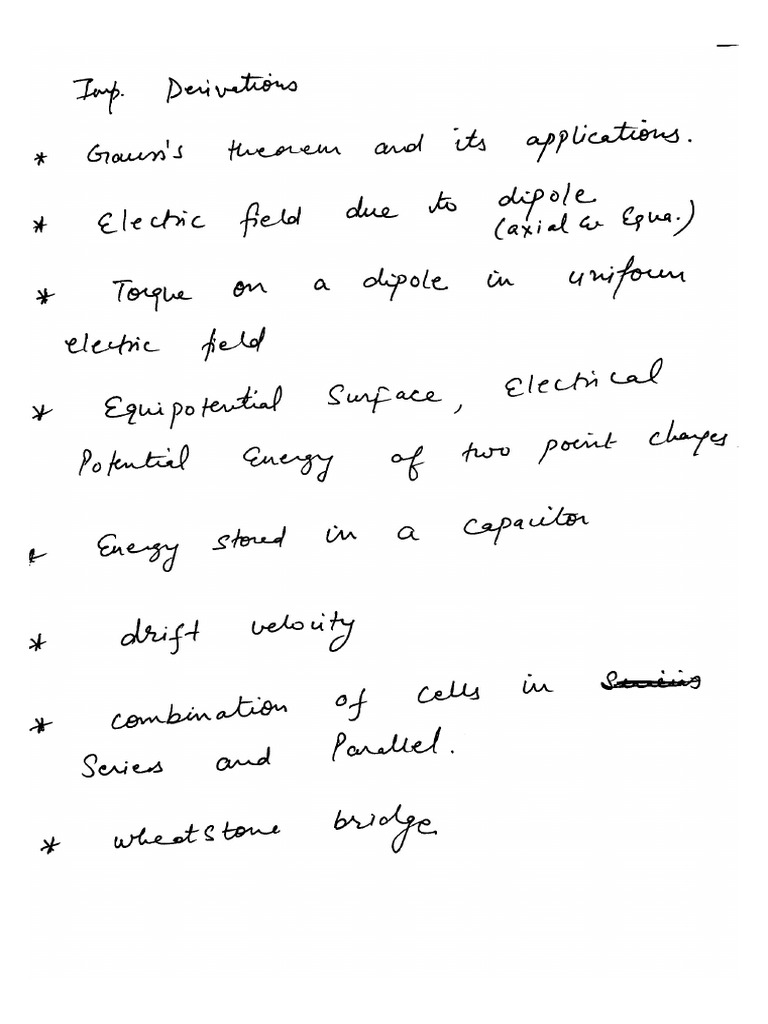 Imp. Derivations
* Gauss's theorem and its applications.
* Electric field due to dipole
(axial & Equa.)
* Torque on a dipole in uniform
electric field
* Equipotential Surface, Electrical
Potential Energy of two point charges
* Energy stored in a capacitor
* drift velocity
* combination of cells in
Series and Parallel.
* wheatstone bridge